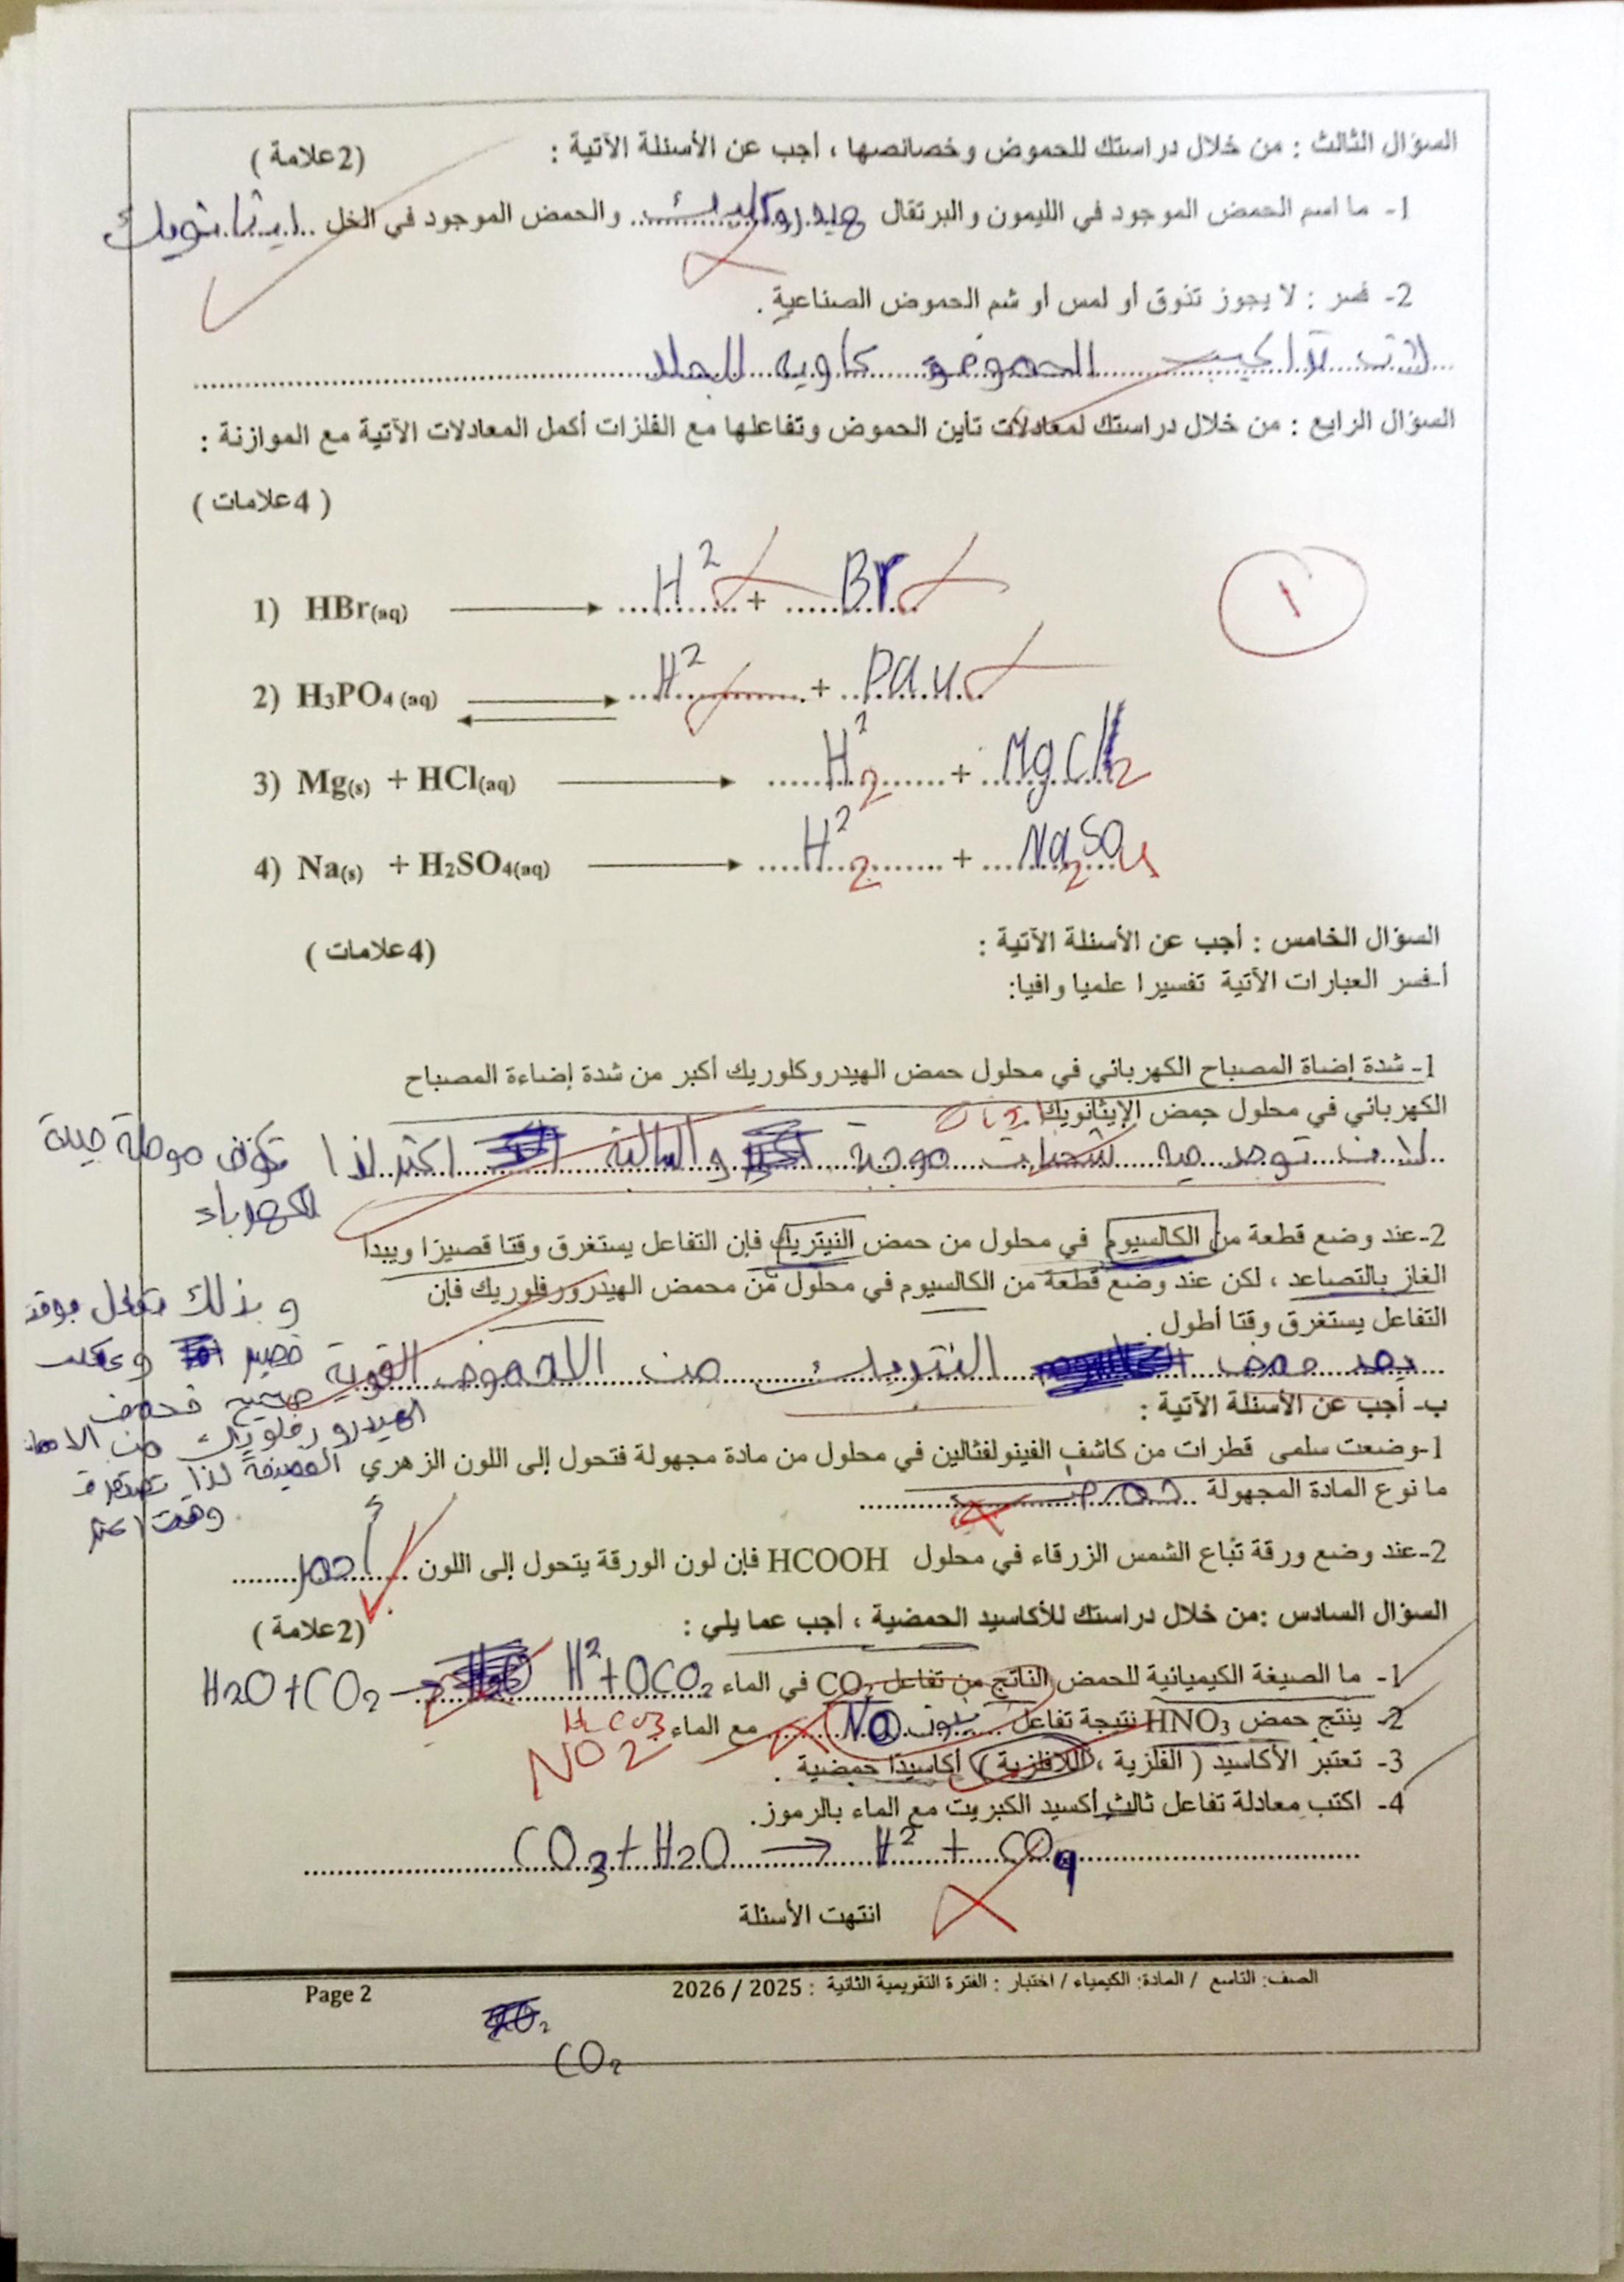 السؤال الثالث : من خلال دراستك للحموض وخصائصها ، أجب عن الأسئلة الآتية : (2علامة )
1- ما اسم الحمض الموجود في الليمون والبرتقال ............ والحمض الموجود في الخل ..ايثانويك
2- فسر : لا يجوز تذوق أو لمس أو شم الحموض الصناعية .
الحموض كاويه للجلد
السؤال الرابع : من خلال دراستك لمعادلات تأين الحموض وتفاعلها مع الفلزات أكمل المعادلات الآتية مع الموازنة :
( 4علامات )
1) HBr(aq) ⟶ H² + Br
1
2) H3PO4 (aq) ⇄ H² +
3) Mg(s) + HCl(aq) ⟶ H²2 + MgCl2
4) Na(s) + H2SO4(aq) ⟶ H²2 + Na2SO4
السؤال الخامس : أجب عن الأسئلة الآتية : (4علامات )
أ-فسر العبارات الآتية تفسيرا علميا وافيا:
1- شدة إضاة المصباح الكهربائي في محلول حمض الهيدروكلوريك أكبر من شدة إضاءة المصباح
الكهربائي في محلول جمض الإيثانويك
لان توجد فيه شحنات موجبة والسالبة اكثر لذا تكون موصلة جيدة
للكهرباء
2-عند وضع قطعة من الكالسيوم في محلول من حمض النيتريك فإن التفاعل يستغرق وقتا قصيرا ويبدا
الغاز بالتصاعد ، لكن عند وضع قطعة من الكالسيوم في محلول من محمض الهيدرورفلوريك فإن
التفاعل يستغرق وقتا أطول .
يعد حمض النتريك من الاحموض القوية
وبذلك تفاعل بوقت
قصير وعكس
صحيح فحمض
الهيدروفلوريك من
الضعيفة لذا
وقت اكثر
ب- أجب عن الأسئلة الآتية :
1-وضعت سلمى قطرات من كاشف الفينولفثالين في محلول من مادة مجهولة فتحول إلى اللون الزهري
ما نوع المادة المجهولة ..حمض
2-عند وضع ورقة تبّاع الشمس الزرقاء في محلول HCOOH فإن لون الورقة يتحول إلى اللون أحمر
السؤال السادس :من خلال دراستك للأكاسيد الحمضية ، أجب عما يلي : (2علامة )
1- ما الصيغة الكيميائية للحمض الناتج من تفاعل CO2 في الماء H2O+CO2 → H²+OCO2
H2CO3
2- ينتج حمض HNO3 نتيجة تفاعل ............ مع الماء
NO2
3- تعتبر الأكاسيد ( الفلزية ، اللافلزية ) أكاسيدا حمضية .
4- اكتب معادلة تفاعل ثالث أكسيد الكبريت مع الماء بالرموز.
CO3+H2O → H² + CO4
انتهت الأسئلة
الصف: التاسع / المادة: الكيمياء / اختبار : الفترة التقويمية الثانية : 2025 / 2026 Page 2
CO2